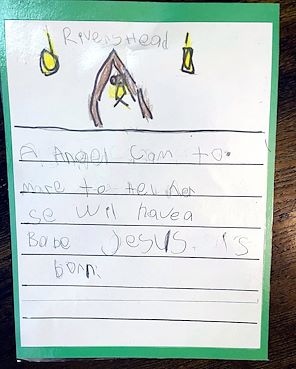 Rivers Head
A Angel cam to
mare to tel her
se wil have a
Babe Jesus. is
born